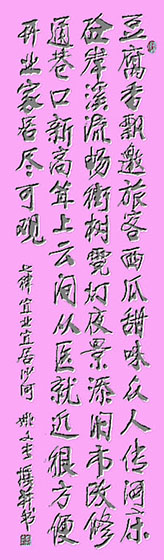 豆腐香飘邀旅客西瓜甜味众人传河床
砼岸溪流畅街树霓灯夜景添旧市改修
通巷口新高耸上云间从医就近很方便
开业家居尽可观
七律宜业宜居沙河